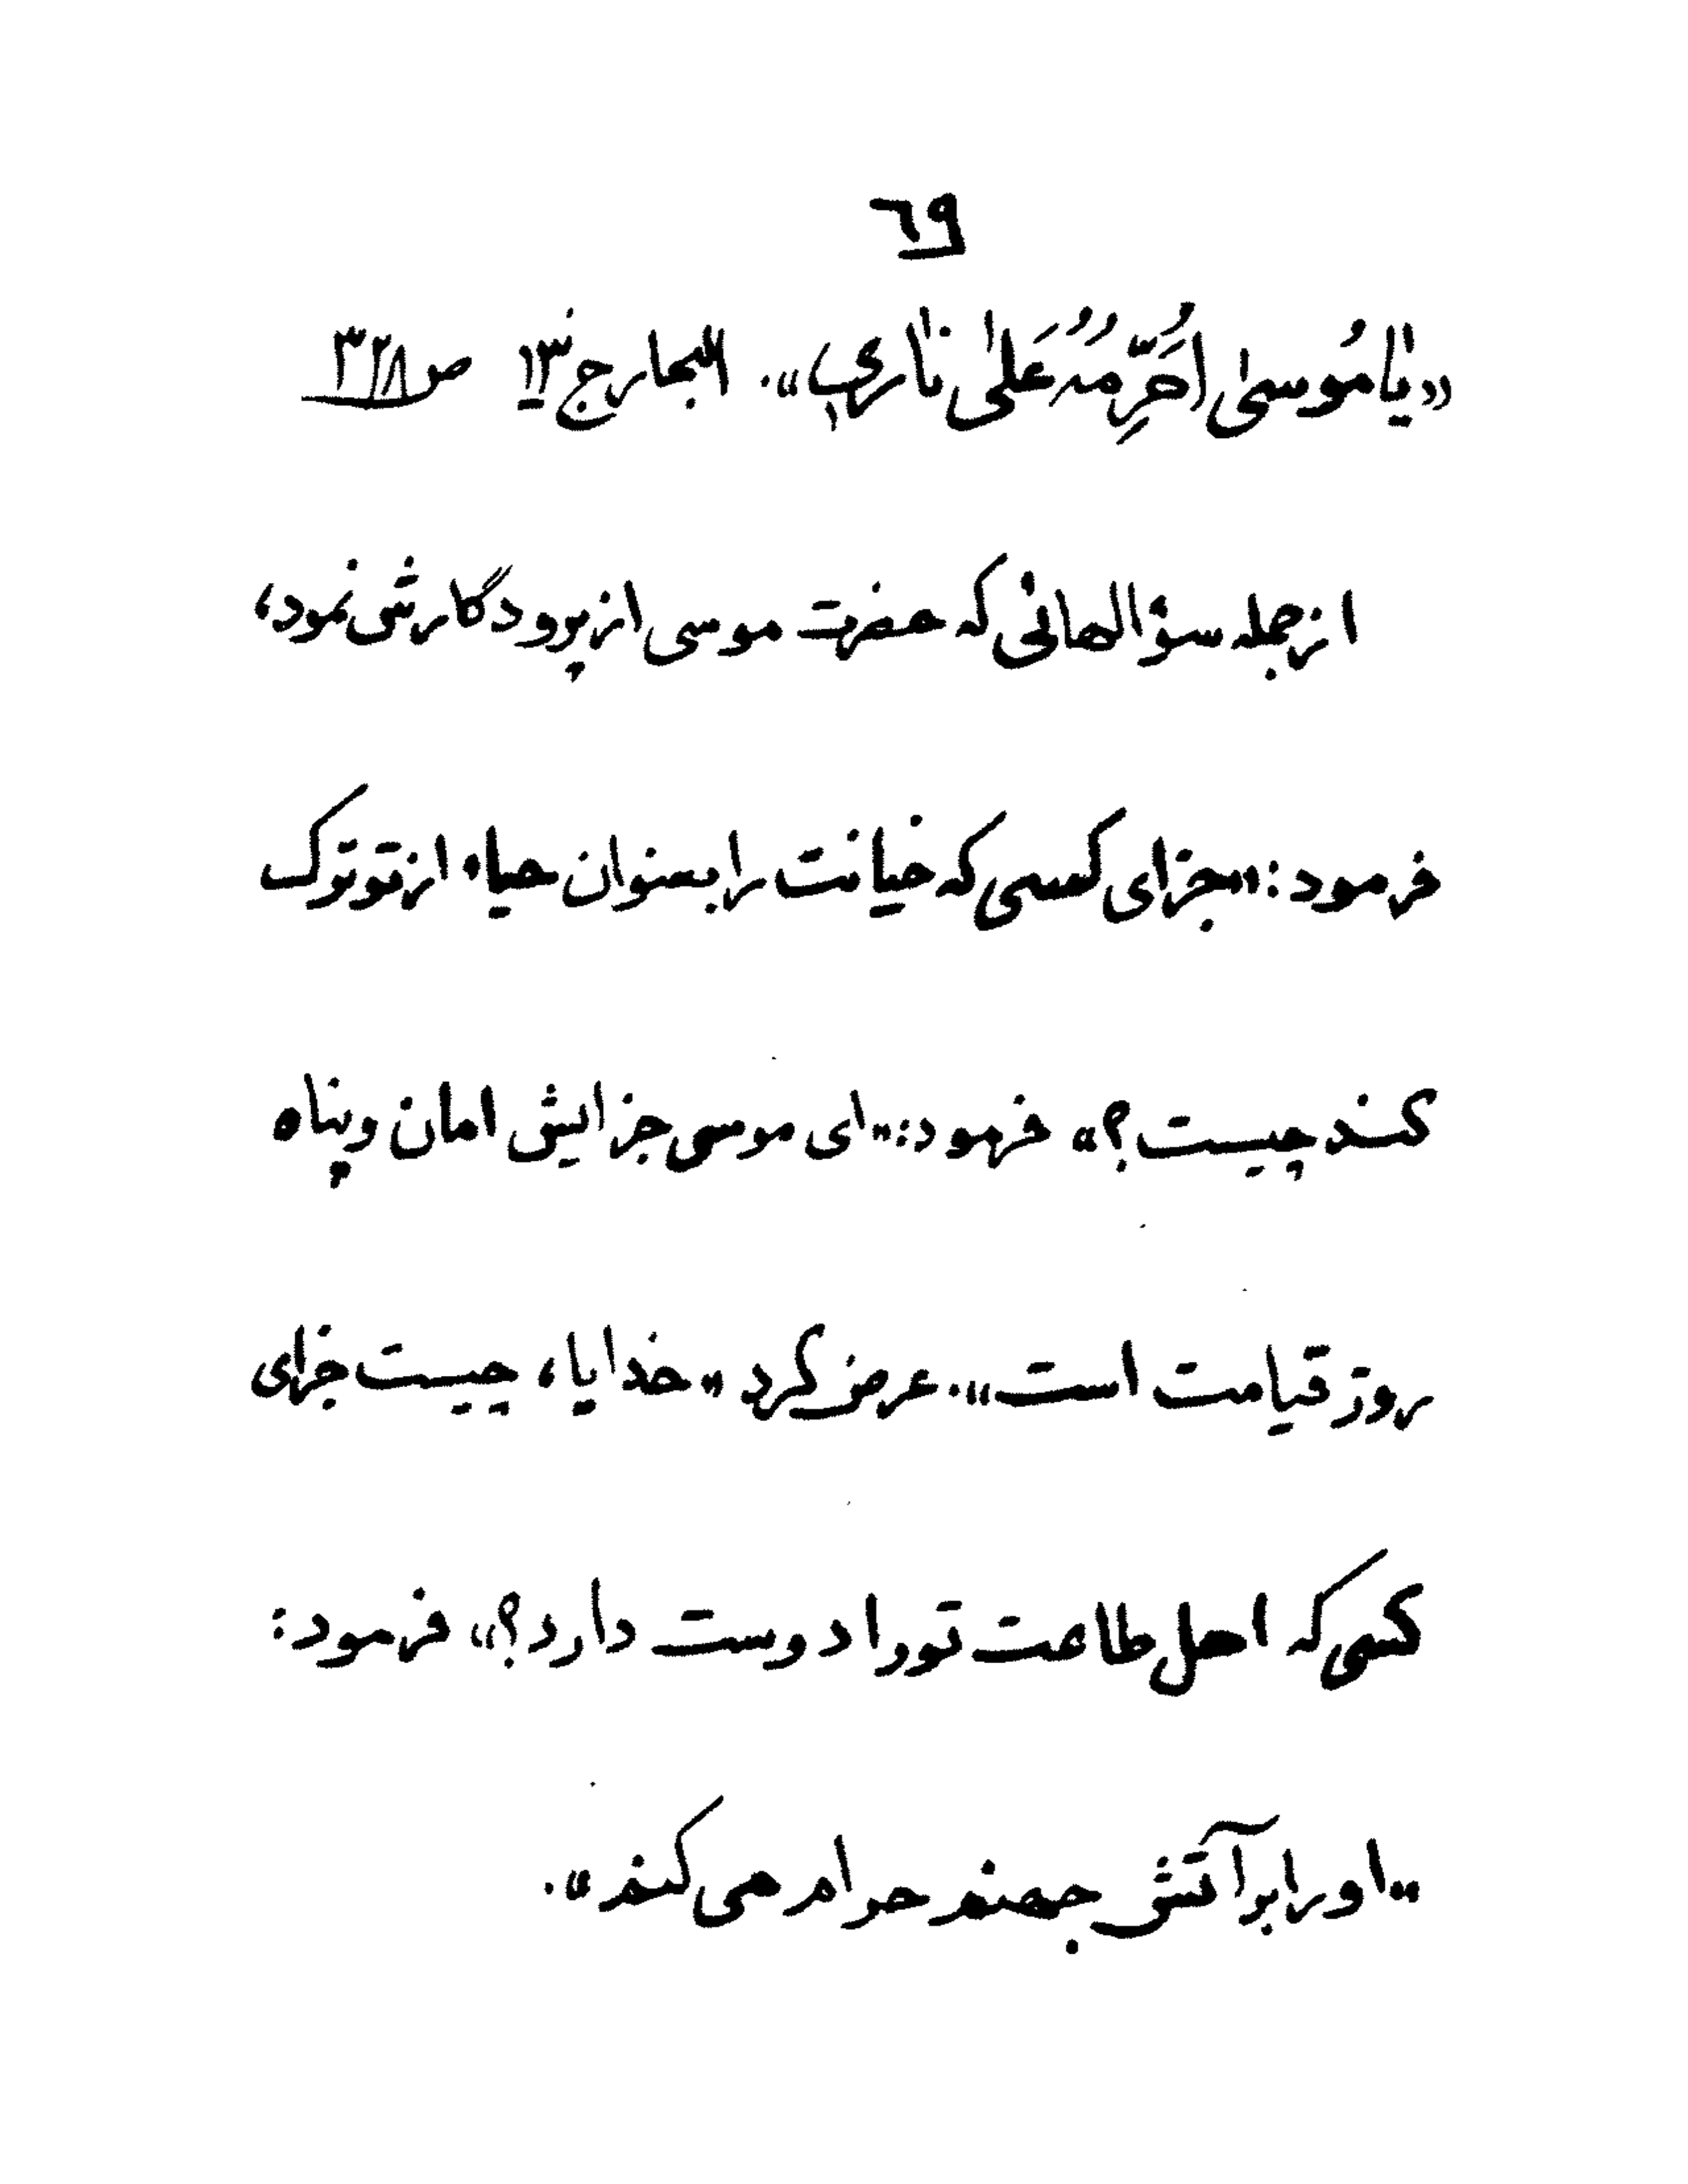 ٦٩
«يٰا مُوسىٰ اُحَرِّمُهُ عَلىٰ نٰاري». البحار ج ۱۳ ص ۳۲۸
از جمله سؤالهائی که حضرت موسی از پروردگارش نمود،
فرمود: «جزای کسی که خیانت را بعنوان حیاء از تو ترک
کند چیست؟» فرمود: «ای موسی جزایش امان و پناه
روز قیامت است». عرض کرد «خدایا، چیست جزای
کسی که اهل طاعت تو را دوست دارد؟» فرمود:
«او را بر آتش جهنم حرام می کنم».